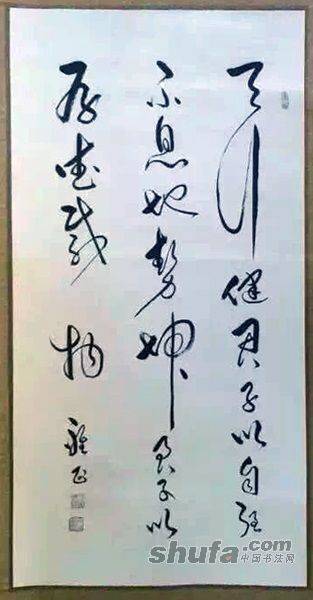 天行健君子以自强
不息地势坤君子以
厚德载物
雅正
shufa.com
中国书法网